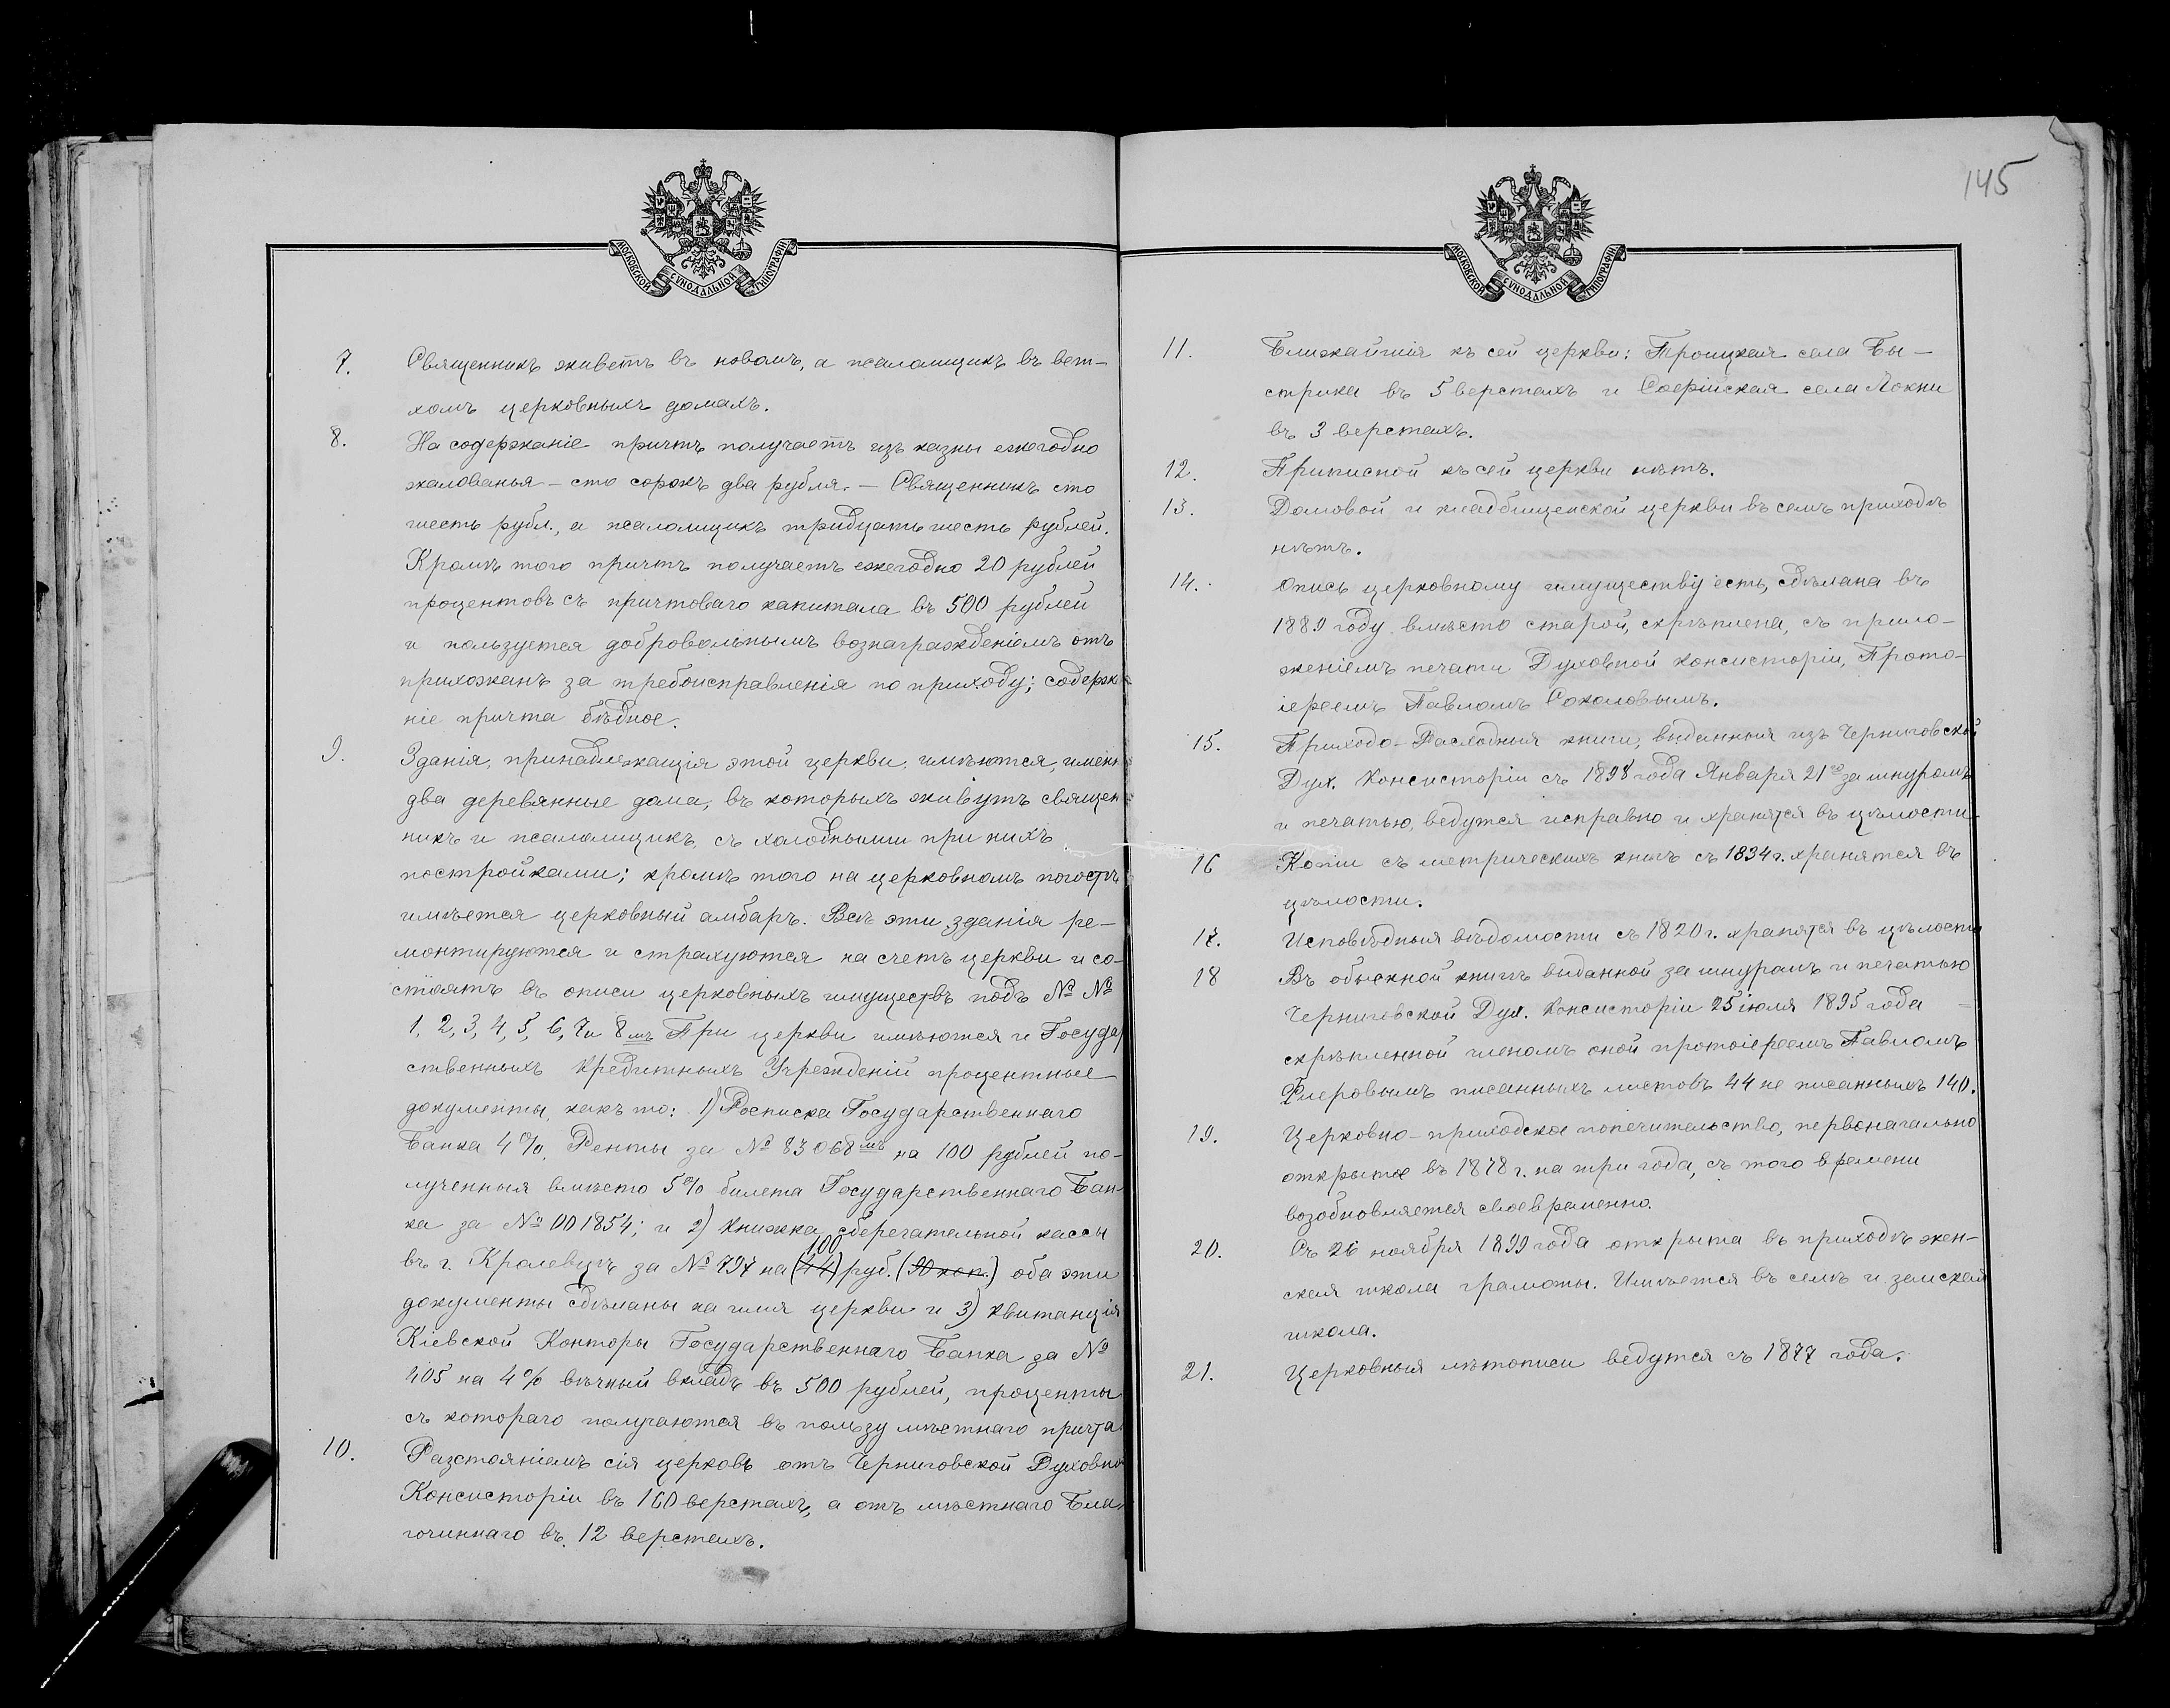 МОСКОВСКОЙ СѴНОДАЛЬНОЙ ТИПОГРАФІИ
7. Священникъ живетъ въ новомъ, а псаломщикъ въ вет-
хомъ церковныхъ домахъ.
8. На содержаніе причтъ получаетъ изъ казны ежегодно
жалованья – сто сорокъ два рубля. – Священникъ сто
шесть рубл., а псаломщикъ тридцать шесть рублей.
Кромѣ того причтъ получаетъ ежегодно 20 рублей
процентовъ съ причтоваго капитала въ 500 рублей
и пользуется добровольнымъ вознагражденіемъ отъ
прихожанъ за требоисправленія по приходу; содерж
ніе причта бѣдное.
9. Зданія, принадлежащія этой церкви, имѣются, именн
два деревянные дома, въ которыхъ живутъ священ
никъ и псаломщикъ, съ холодными при нихъ
постройками; кромѣ того на церковномъ погостѣ
имѣется церковный амбаръ. Всѣ эти зданія ре-
монтируются и страхуются на счетъ церкви и со-
стоятъ въ описи церковныхъ имуществъ подъ №№
1, 2, 3, 4, 5, 6, 7 и 8мъ При церкви имѣются и Госуда
ственныхъ Кредитныхъ Учрежденій процентные
документы, какъ то: 1) Росписка Государственнаго
Банка 4%, Ренты за № 83068мъ на 100 рублей по-
лученныя вмѣсто 5% билета Государственнаго Бан-
ка за № 001854; и 2) Книжка сберегательной кассы
100
въ г. Кролевцѣ за № 797 на (44) руб. (90 коп.) оба эти
документы сдѣланы на имя церкви и 3) Квитанція
Кіевской Конторы Государственнаго Банка за №
405 на 4% вѣчный вкладъ въ 500 рублей, проценты
съ котораго получаются въ пользу мѣстнаго причта
10. Разстояніемъ сія церковь отъ Черниговской Духовно
Консисторіи въ 160 верстахъ, а отъ мѣстнаго Бла-
гочиннаго въ 12 верстахъ.
145
МОСКОВСКОЙ СѴНОДАЛЬНОЙ ТИПОГРАФІИ
11. Ближайшія къ сей церкви: Троицкая села Бы-
стрика въ 5 верстахъ и Софійская села Локни
въ 3 верстахъ.
12. Приписной къ сей церкви нѣтъ.
13. Домовой и кладбищенской церкви въ семъ приходѣ
нѣтъ.
14. Опись церковному имуществу есть, сдѣлана въ
1889 году вмѣсто старой, скрѣплена, съ прило-
женіемъ печати Духовной Консисторіи, Прото-
іереемъ Павломъ Соколовымъ.
15. Приходо-Расходныя книги, выданныя изъ Черниговской
Дух. Консисторіи съ 1898 года Января 21го за шнуромъ
и печатью, ведутся исправно и хранятся въ цѣлости
16 Копіи съ метрическихъ книгъ съ 1834 г. хранятся въ
цѣлости.
17. Исповѣдныя вѣдомости съ 1820 г. хранятся въ цѣлости
18 Въ обыскной книгѣ выданной за шнуромъ и печатью
Черниговской Дух. Консисторіи 25 іюля 1895 года
скрѣпленной членомъ оной протоіереемъ Павломъ
Флеровымъ писанныхъ листовъ 44 не писанныхъ 140.
19. Церковно-приходское попечительство, первоначально
открытое въ 1878 г. на три года, съ того времени
возобновляется своевременно.
20. Съ 26 ноября 1899 года открыта въ приходѣ жен-
ская школа грамоты. Имѣется въ селѣ и земская
школа.
21. Церковныя лѣтописи ведутся съ 1877 года.